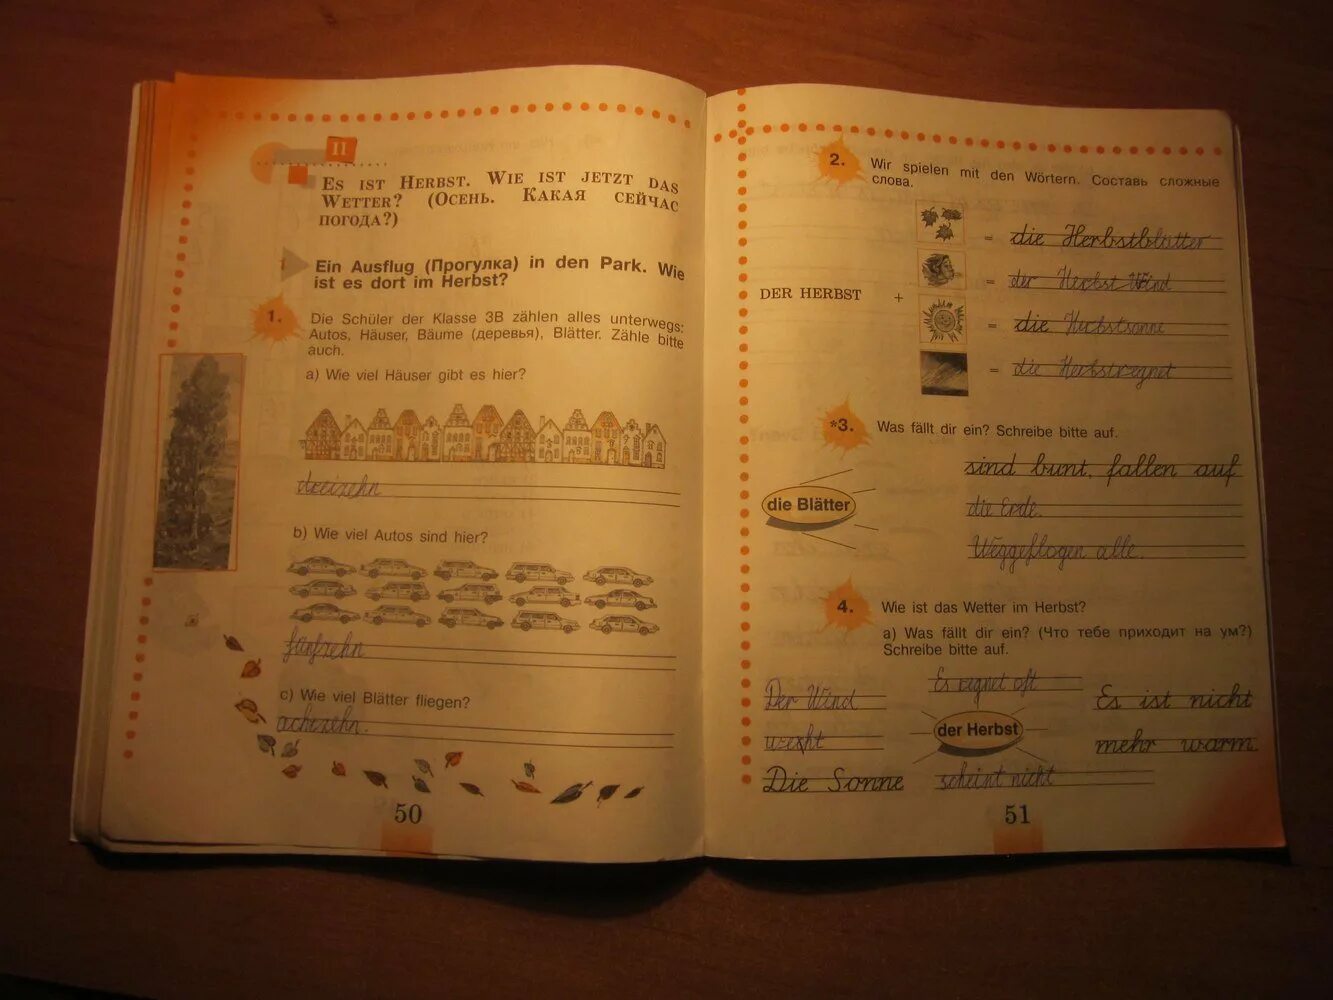 II
ES IST HERBST. WIE IST JETZT DAS
WETTER? (ОСЕНЬ. КАКАЯ СЕЙЧАС
ПОГОДА?)
1 Ein Ausflug (Прогулка) in den Park. Wie
ist es dort im Herbst?
1. Die Schüler der Klasse 3B zählen alles unterwegs:
Autos, Häuser, Bäume (деревья), Blätter. Zähle bitte
auch.
a) Wie viel Häuser gibt es hier?
dreizehn
b) Wie viel Autos sind hier?
fünfzehn
c) Wie viel Blätter fliegen?
achtzehn.
50
2. Wir spielen mit den Wörtern. Составь сложные
слова.
= die Herbstblätter
= der Herbst Wind
DER HERBST +
= die Herbstsonne
= die Herbstregnet
*3. Was fällt dir ein? Schreibe bitte auf.
sind bunt, fallen auf
die Blätter
die Erde.
Weggeflogen alle.
4. Wie ist das Wetter im Herbst?
a) Was fällt dir ein? (Что тебе приходит на ум?)
Schreibe bitte auf.
Es regnet oft
Der Wind
Es ist nicht
der Herbst
mehr warm.
Die Sonne scheint nicht
51